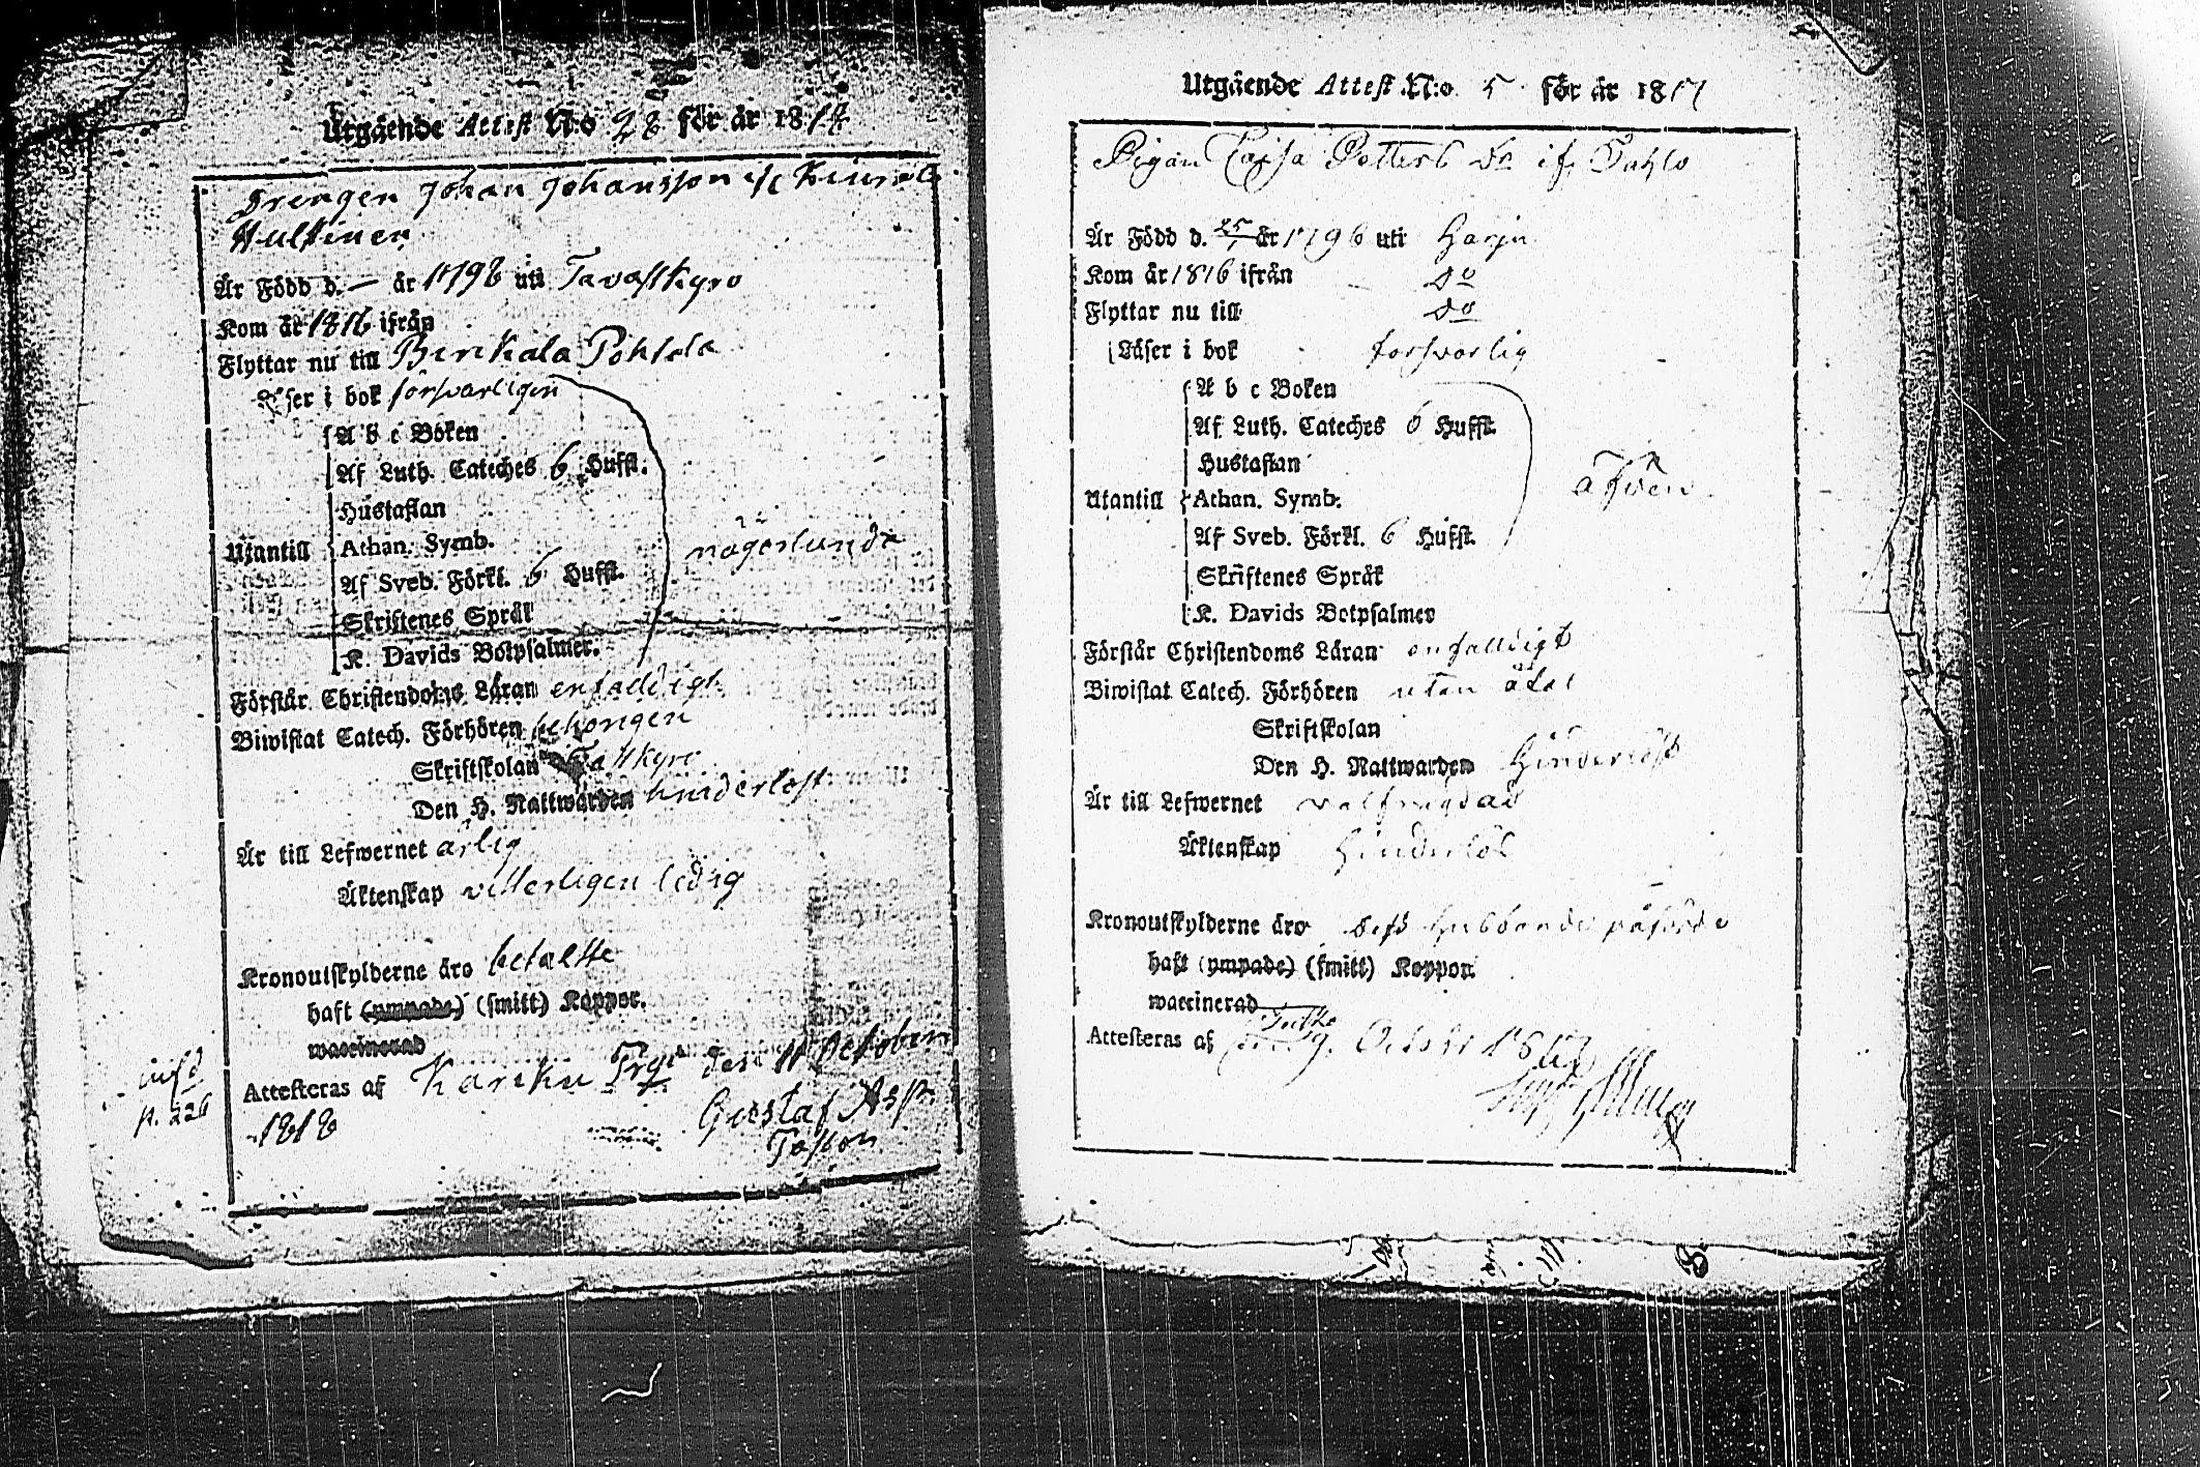 Utgående Attest N:o 28 för år 1818
Drengen Johan Johansson if
Hultinen
Är Född d. — år 1798 uti Tavastkyro
Kom år 1816 ifrån
Flyttar nu till Birkala Pohtola
Läser i bok försvarligen
A b c Boken
Af Luth. Cateches 6 Hufst.
Hustaflan
Utantill
Athan. Symb.
någorlunda
Af Sveb. Förkl. 6 Hufst.
Skriftenes Språk
K. Davids Botpsalmer.
Förstår Christendoms Läran enfaldigt
Biwistat Catech. Förhören behörigen
Skriftskolan
Den H. Nattwarden hinderlöst
Är till Lefwernet ärlig
Äktenskap vitterligen ledig
Kronoutskylderne äro betaltte
haft (ympade) (smitt) Koppor.
waccinerad
Attesteras af Karcku den 11 October
1818
Gustaf Asp
Pastor
p. 226
Utgående Attest N:o 5 för år 1817
Pigan Cajsa Petters Dr if
Är Född d. 25/1 år 1796 uti Harju
Kom år 1816 ifrån do
Flyttar nu till do
Läser i bok forsvarlig
A b c Boken
Af Luth. Cateches 6 Hufst.
Hustaflan
Utantill
Athan. Symb.
äfven
Af Sveb. Förkl. 6 Hufst.
Skriftenes Språk
K. Davids Botpsalmer
Förstår Christendoms Läran enfalldigt
Biwistat Catech. Förhören utan
Skriftskolan
Den H. Nattwarden Hinderlöst
Är till Lefwernet välfrägdad
Äktenskap Hinderlös
Kronoutskylderne äro
haft (ympade) (smitt) Koppor.
waccinerad
Attesteras af